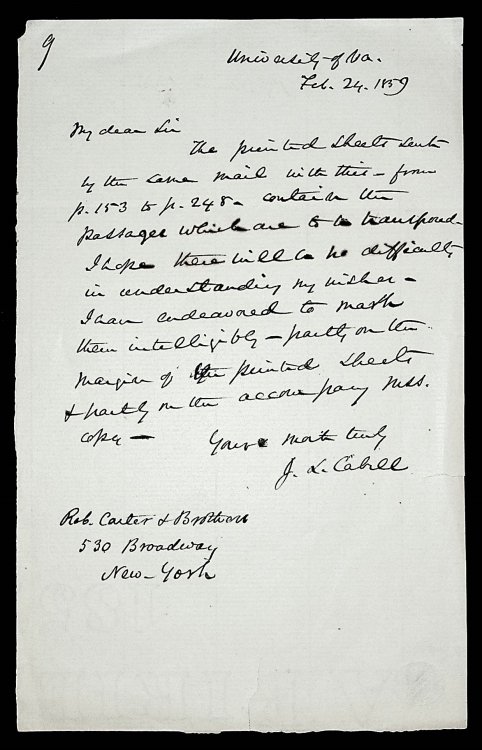 9
University of Va.
Feb. 24. 1859
My dear Sir
The printed sheets sent
by the same mail with this – from
p. 153 to p. 248 – contain the
passages which are to be transposed.
I hope there will be no difficulty
in understanding my wishes –
I have endeavored to mark
them intelligibly – partly on the
margin of the printed sheets
& partly on the accompany mss.
copy –
Yours most truly
J. L. Cabell
Rob. Carter & Brothers
530 Broadway
New-York